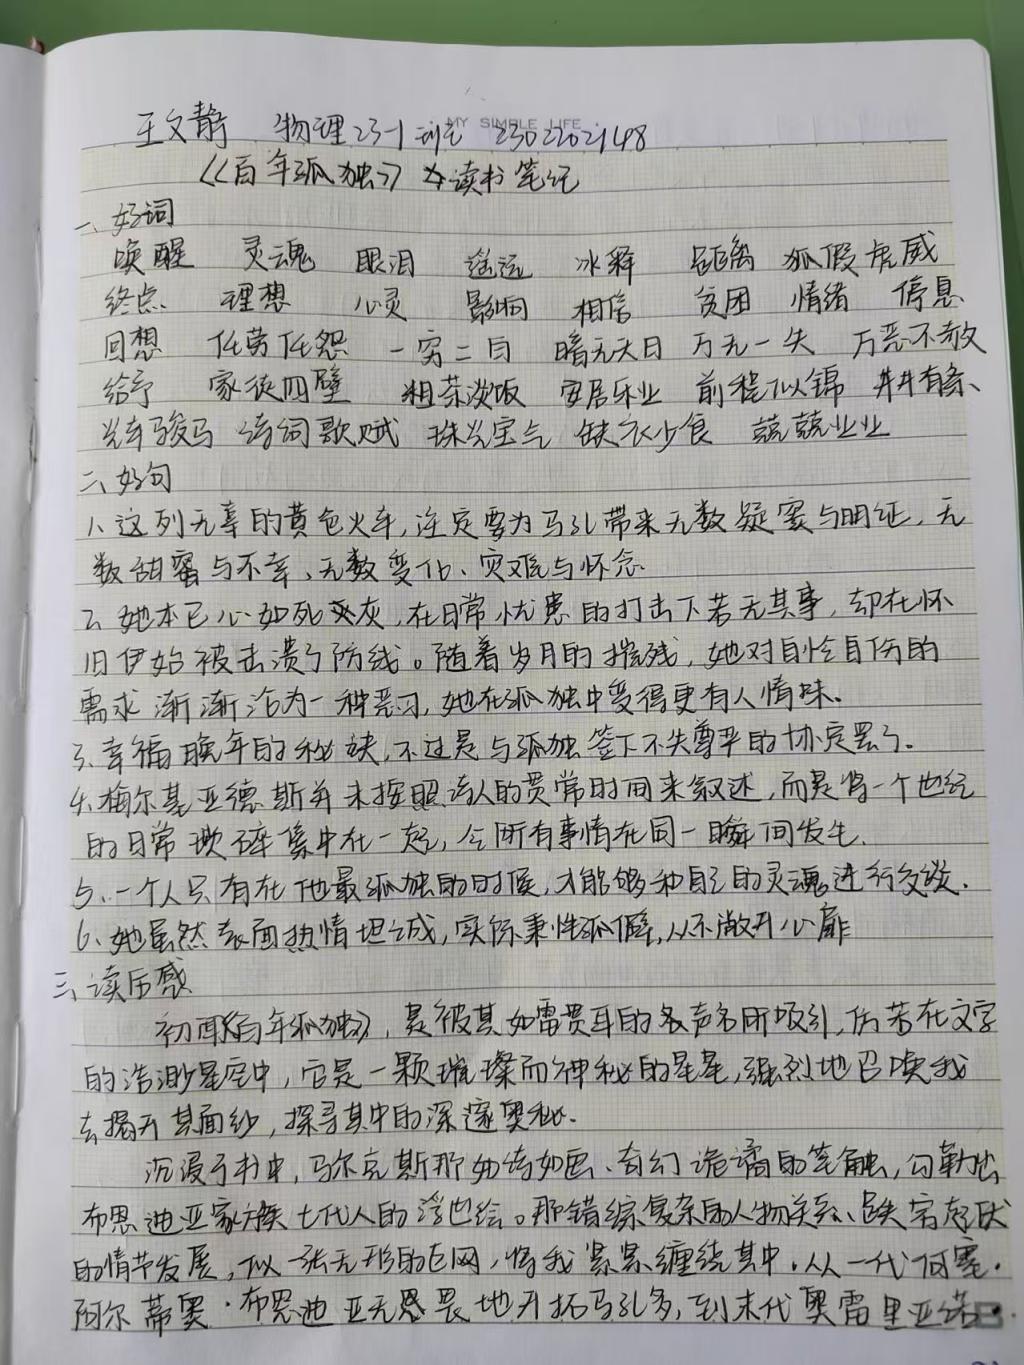 王文静 物理23-1 2302202148
MY SIMPLE LIFE
《百年孤独》读书笔记
一、好词
唤醒 灵魂 眼泪 遥远 冰释 距离 狐假虎威
终点 理想 心灵 影响 相信 贫困 情绪 停息
回想 任劳任怨 一穷二白 暗无天日 万无一失 万恶不赦
给予 家徒四壁 粗茶淡饭 安居乐业 前程似锦 井井有条、
骏马 诗词歌赋 珠光宝气 缺衣少食 兢兢业业
二、好句
1、这列无辜的黄色火车,注定要为马孔带来无数疑窦与明证,无
数甜蜜与不幸、无数变化、灾难与怀念.
2、她本已心如死灰,在日常忧患的打击下若无其事,却在怀
旧伊始被击溃了防线。随着岁月的摧残,她对自怜自伤的
需求渐渐沦为一种恶习,她在孤独中变得更有人情味.
3、幸福晚年的秘诀,不过是与孤独签下不失尊严的协定罢了.
4、梅尔基亚德斯并未按照诗人的贯常时间来叙述,而是将一个世纪
的日常琐碎集中在一起,令所有事情在同一瞬间发生.
5、一个人只有在他最孤独的时候,才能够和自己的灵魂进行交谈.
6、她虽然表面热情坦诚,实际秉性孤僻,从不敞开心扉
三、读后感
初闻《百年孤独》,是被其如雷贯耳的名声名所吸引,仿若在文字
的浩渺星空中,它是一颗璀璨而神秘的星星,强烈地召唤我
去揭开其面纱,探寻其中的深邃奥秘.
沉浸于书中,马尔克斯那如诗如画、奇幻诡谲的笔触,勾勒出
布恩迪亚家族七代人的浮世绘。那错综复杂的人物关系、跌宕起伏
的情节发展,似一张无形的巨网,将我紧紧缠绕其中.从一代何塞·
阿尔蒂奥·布恩迪亚无畏地开拓马孔多,到末代奥雷里亚诺·